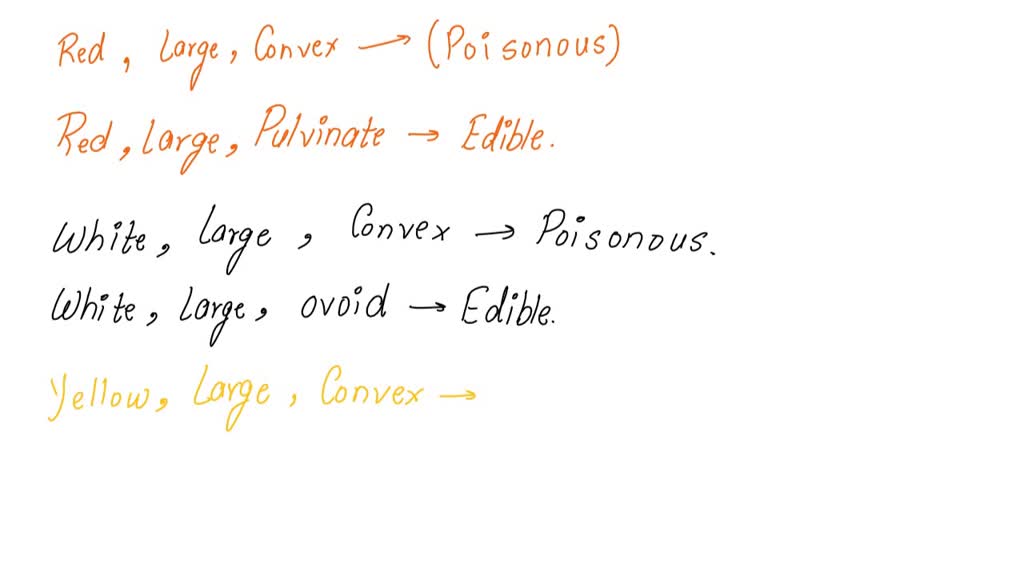 Red, Large, Convex → (Poisonous)
Red, Large, Pulvinate → Edible.
White, Large, Convex → Poisonous.
White, Large, ovoid → Edible.
Yellow, Large, Convex →